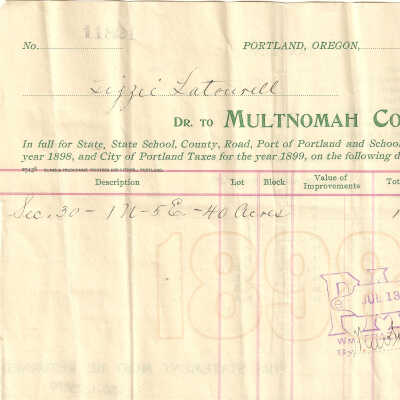 No.
PORTLAND, OREGON,
Lizzie Latourell
DR. TO MULTNOMAH CO
In full for State, State School, County, Road, Port of Portland and Schoo
year 1898, and City of Portland Taxes for the year 1899, on the following d
Description Lot Block Value of Improvements Tot
Sec. 30 - 1 N - 5 E - 40 Acres 1
1899
JUL 13
WM